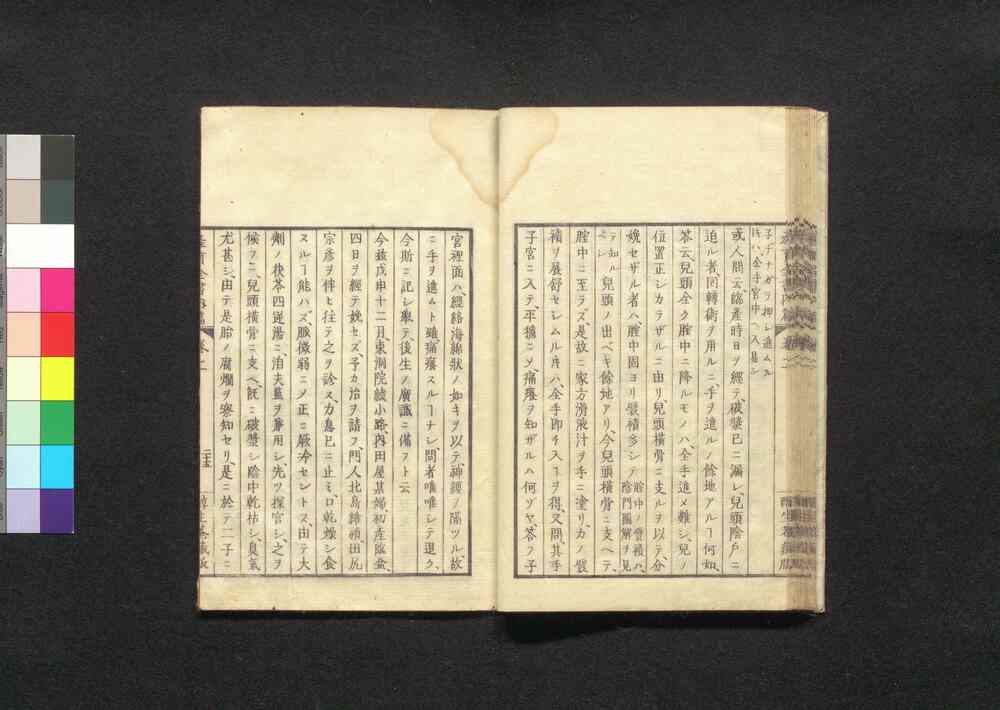 子チナガラ押シ進ムス
時ハ全手宮中ヘ入易シ
或人問云、臨產時日ヲ經テ、破漿已ニ漏レ、兒頭陰戶ニ
迫ル者、囘轉術ヲ用ルニ、手ヲ進ルノ餘地アルヿ何如、
答云、兒頭全ク腔中ニ降ルモノハ、全手進メ難シ、兒ノ
位置正シカラザルニ由リ、兒頭橫骨ニ支ルヲ以テ、分
娩セザル者ハ腔中固ヨリ襞積多シテ
腔中ノ襞積ハ、
陰門圖解ヲ見
テ知ル
ベシ
兒頭ノ出ベキ餘地アリ、今兒頭橫骨ニ支ヘテ、
腔中ニ至ラズ、是故ニ家方滑液汁ヲ手ニ塗リ、カノ襞
積ヲ展舒セシムル片ハ、全手卽チ入ルヿヲ得、又問、其手
子宮ニ入テ、平穩ニメ、痛癢ヲ知ザルハ何ゾヤ、答フ子
宮裡面ハ、經絡海綿狀ノ如キヲ以テ、神經ノ隔ツル、故
ニ手ヲ進ムト雖、痛癢スルヿナシ、問者唯唯シテ退ク、
今斯ニ記シ擧テ後生ノ廣識ニ備フト云
今玆戊申十二月、東洞院綾小路、內田屋某婦初產臨盆、
四日ヲ經テ娩セズ、予カ治ヲ請フ、門人北島諦順、田尻
宗彥ヲ伴ヒ往テ之ヲ診ス、力息已ニ止ミ、口乾燥シ食
スルヿ能ハズ、脈微弱ニメ正ニ厥冷セントス、由テ大
劑ノ茯苓四逆湯ニ、泊夫藍ヲ兼用シ、先ツ探宮シ、之ヲ
候フニ、兒頭橫骨ニ支ヘ、既ニ破漿シ陰中乾枯シ、臭氣
尤甚シ、由テ是胎ノ腐爛ヲ察知セリ、是ニ於テ二子ニ